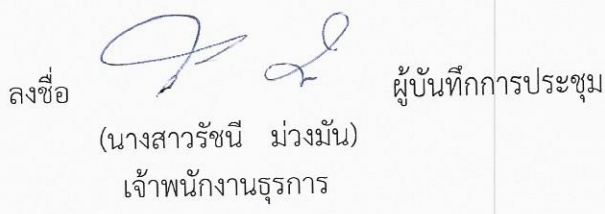 ลงชื่อ ผู้บันทึกการประชุม
(นางสาวรัชนี ม่วงมัน)
เจ้าพนักงานธุรการ